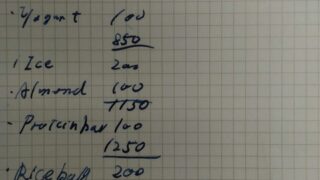 · Yogart 100
850
· Ice 200
· Almond 100
1150
- Proteinbar 100
1250
· Riceball 200